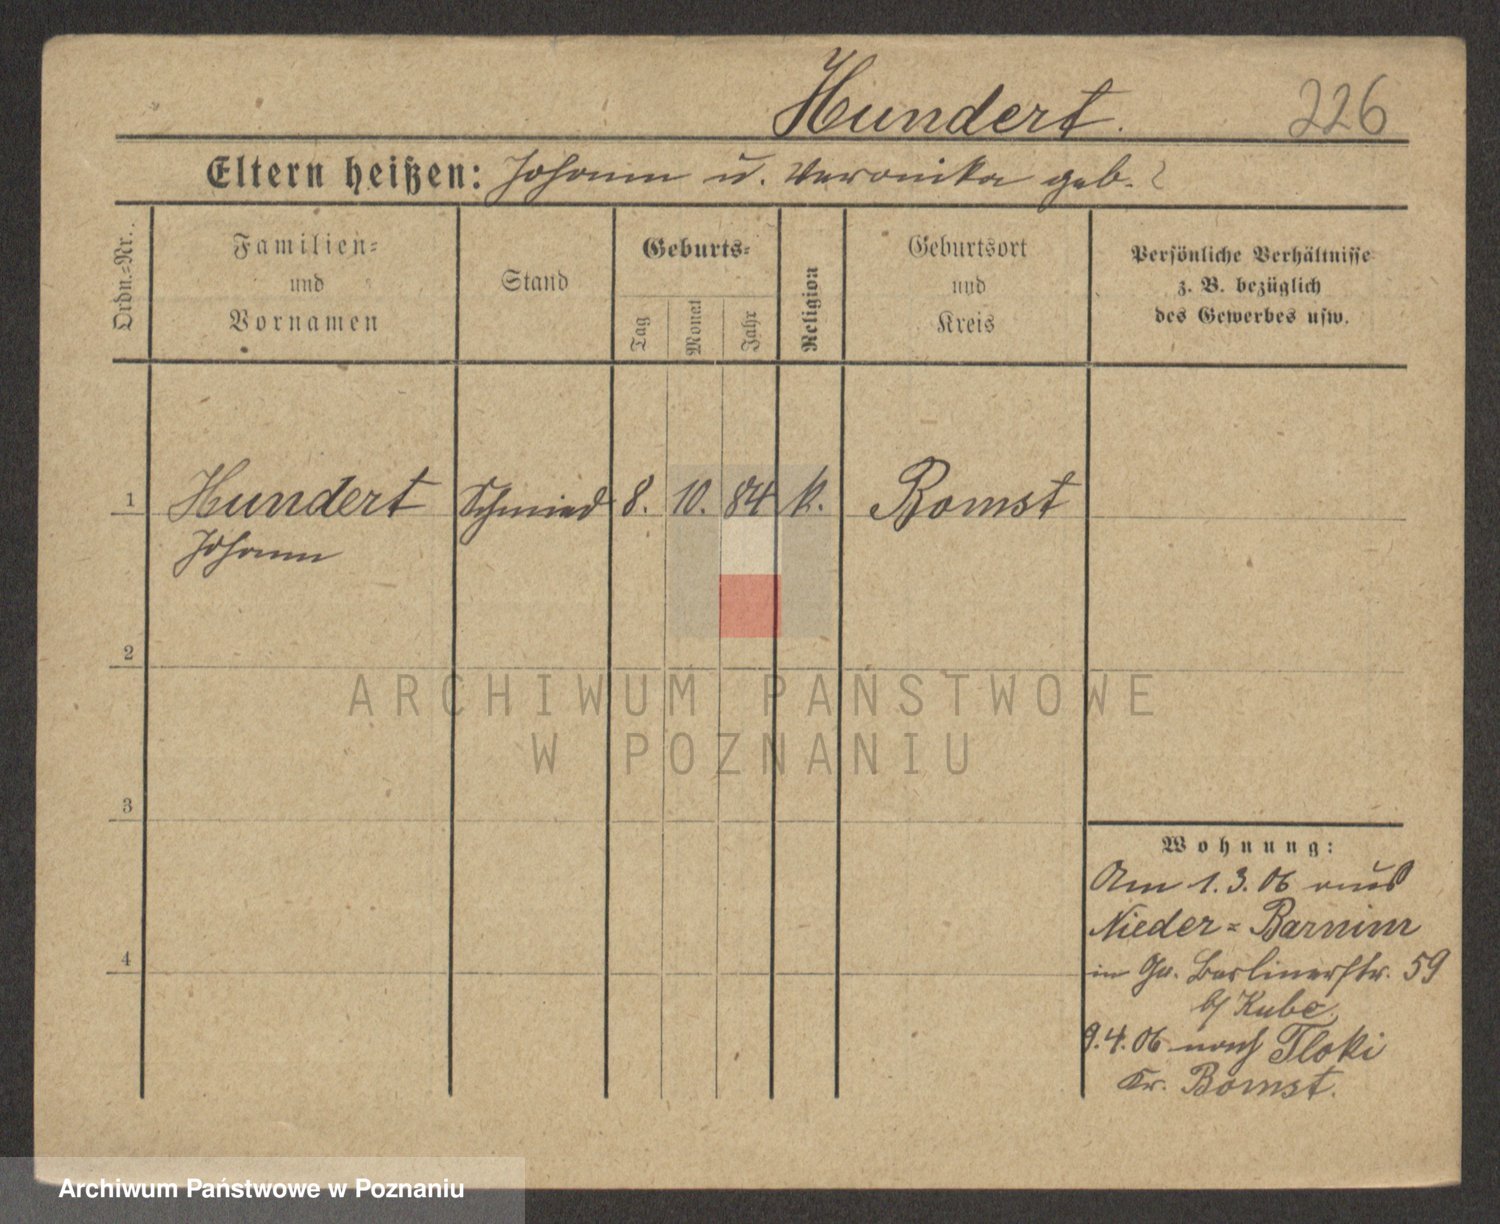 Hundert.
226
Eltern heißen: Johann u. Veronika geb. ?
Ordn.=Nr.
Familien=
und
Vornamen
Stand
Geburts=
Tag
Monat
Jahr
Religion
Geburtsort
und
Kreis
Persönliche Verhältnisse
z. B. bezüglich
des Gewerbes usw.
1 Hundert Schmied 8. 10. 84 k. Bomst
Johann
2
ARCHIWUM PAŃSTWOWE
W POZNANIU
3
4
Wohnung:
Am 1.3.06 aus
Nieder=Barnim
in Gr. Berlinerstr. 59
b/ Kube
9.4.06 nach Tloki
Kr. Bomst.
Archiwum Państwowe w Poznaniu